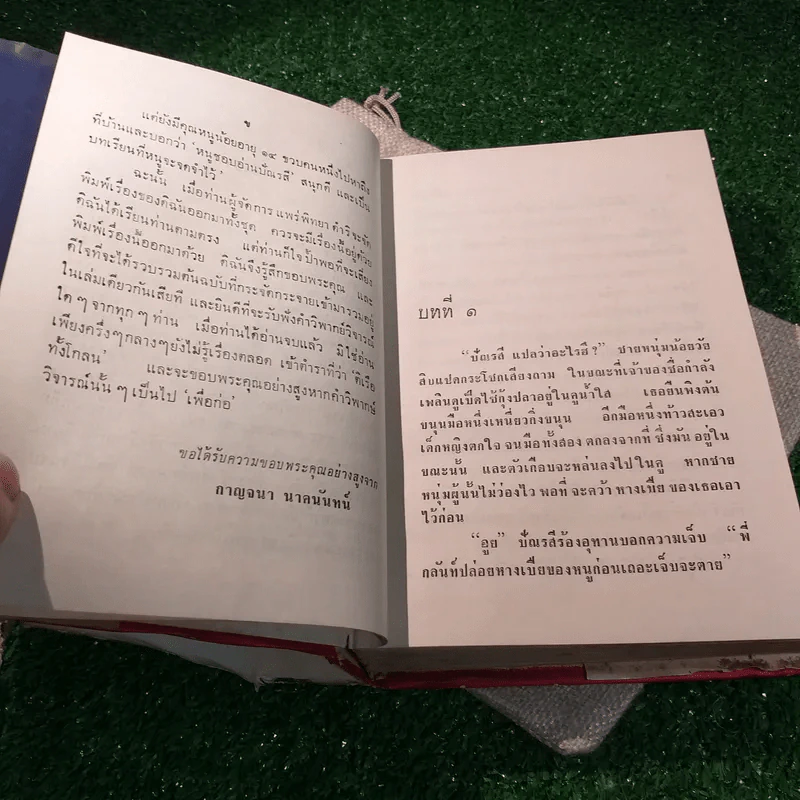 ข
แต่ยังมีคุณหนูน้อยอายุ ๑๔ ขวบคนหนึ่งไปหาถึง
ที่บ้านและบอกว่า 'หนูชอบอ่านปัณรสี' สนุกดี และเป็น
บทเรียนที่หนูจะจดจำไว้'
ฉะนั้น เมื่อท่านผู้จัดการ แพร่พิทยา ดำริจะจัด
พิมพ์เรื่องของดิฉันออกมาทั้งชุด ควรจะมีเรื่องนี้อยู่ด้วย
ดิฉันได้เรียนท่านตามตรง แต่ท่านก็ใจป้ำพอที่จะเสี่ยง
พิมพ์เรื่องนี้ออกมาด้วย ดิฉันจึงรู้สึกขอบพระคุณ และ
ดีใจที่จะได้รวบรวมต้นฉบับที่กระจัดกระจายเข้ามารวมอยู่
ในเล่มเดียวกันเสียที และยินดีที่จะรับฟังคำวิพากย์วิจารณ์
ใด ๆ จากทุก ๆ ท่าน เมื่อท่านได้อ่านจบแล้ว มิใช่อ่าน
เพียงครึ่งๆกลางๆยังไม่รู้เรื่องตลอด เข้าตำราที่ว่า 'ติเรือ
ทั้งโกลน' และจะขอบพระคุณอย่างสูงหากคำวิพากษ์
วิจารณ์นั้น ๆ เป็นไป 'เพื่อก่อ'
ขอได้รับความขอบพระคุณอย่างสูงจาก
กาญจนา นาคนันทน์
บทที่ ๑
“ปัณรสี แปลว่าอะไรฮึ?” ชายหนุ่มน้อยวัย
สิบแปดกระโชกเสียงถาม ในขณะที่เจ้าของชื่อกำลัง
เพลินดูเป็ดไซ้กุ้งปลาอยู่ในคูน้ำใส เธอยืนพิงต้น
ขนุนมือหนึ่งเหนี่ยวกิ่งขนุน อีกมือหนึ่งท้าวสะเอว
เด็กหญิงตกใจ จนมือทั้งสอง ตกลงจากที่ ซึ่งมัน อยู่ใน
ขณะนั้น และตัวเกือบจะหล่นลงไปในคู หากชาย
หนุ่มผู้นั้นไม่ว่องไว พอที่ จะคว้า หางเปีย ของเธอเอา
ไว้ก่อน
“อูย” ปัณรสีร้องอุทานบอกความเจ็บ “พี่
กลันท์ปล่อยหางเปียของหนูก่อนเถอะเจ็บจะตาย”